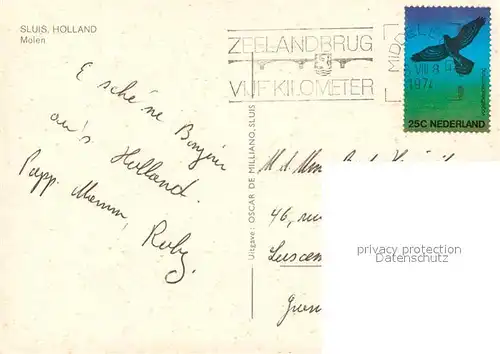 SLUIS, HOLLAND
Molen
ZEELANDBRUG
VIJF KILOMETER
MIDDELB
VIII
1974
25C NEDERLAND
E schéine Bonjour
aus Holland.
Papp, Mamm, Roby.
Uitgave: OSCAR DE MILLIANO, SLUIS
M. et Mme
46, rue
privacy protection
Datenschutz